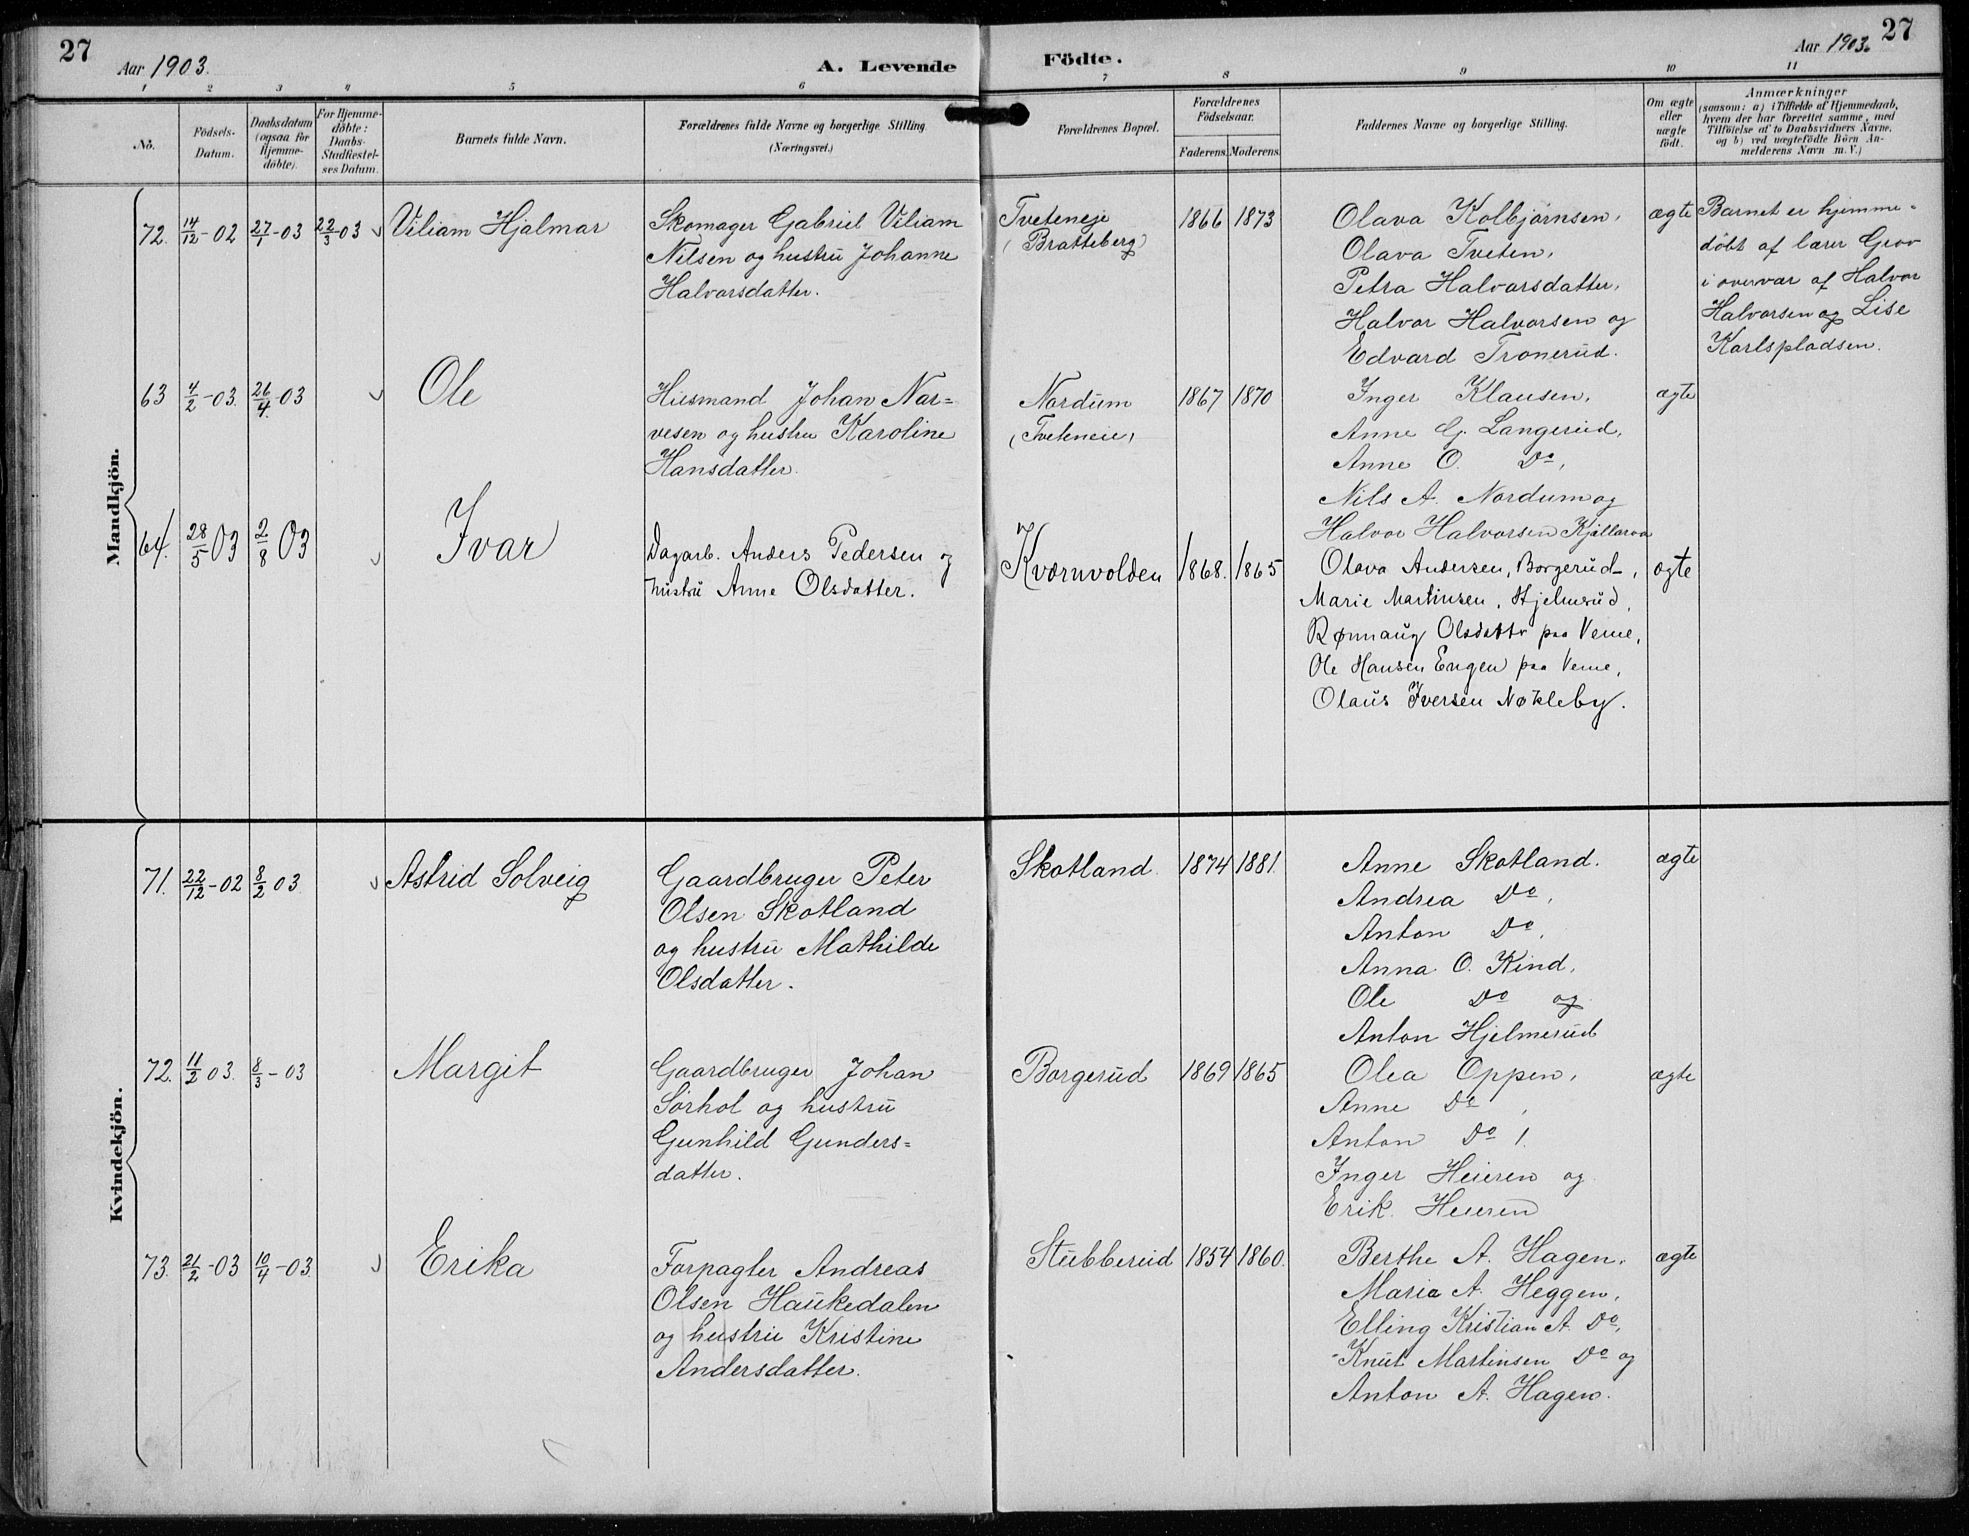 27
Aar 1903.
A. Levende
Födte.
Aar 1903.
27
1 2 3 4 5 6 7 8 9 10 11
No.
Födsels-
Datum.
Daabsdatum
(ogsaa for
Hjemme-
döbte).
For Hjemme-
döbte:
Daabs-
Stadfæstel-
ses Datum.
Barnets fulde Navn.
Forældrenes fulde Navne og borgerlige Stilling
(Næringsvei.)
Forældrenes Bopæl.
Forældrenes
Födselsaar.
Faderens. Moderens.
Faddernes Navne og borgerlige Stilling.
Om ægte
eller
uægte
födt.
Anmærkninger
(saasom: a) i Tilfælde af Hjemmedaab,
hvem der har forrettet samme, med
Tilföielse af to Daabsvidners Navne,
og b) ved uægtefödte Börn An-
melderens Navn m. V.)
Mandkjön.
72. 14/12-02 27/1-03 22/3-03 Viliam Hjalmar
Skomager Gabriel Viliam
Nilsen og hustru Johanne
Halvorsdatter.
Tveteneje
(Bratteberg)
1866 1873
Olava Kolbjørnsen,
Olava Tveten,
Petra Halvorsdatter,
Halvor Halvorsen og
Edvard Tronerud.
ægte
Barnet er hjemme-
döbt af lærer Grov
i overvær af Halvor
Halvorsen og Lise
Karlspladsen.
63 4/2-03. 26/4-03 Ole
Husmand Johan Nar-
vesen og hustru Karoline
Hansdatter.
Nordum
(Tveteneie)
1867 1870
Inger Klausen,
Anne G. Langerud,
Anne O. Do,
Nils A. Nordum og
Halvor Halvorsen
ægte
64. 28/5 03 2/8 03 Ivar
Dagarb. Anders Pedersen og
hustru Anne Olsdatter.
Kværnvolden
1868. 1865
Olava Andersen, Borgerud,
Marie Martinsen, Hjelmerud,
Rønnaug Olsdattr paa Verne,
Ole Hansen Engen paa Verne,
Olaus Iversen Nøkleby.
ægte
Kvindekjön.
71. 22/12-02 8/2 03. Astrid Solveig
Gaardbruger Peter
Olsen Skotland
og hustru Mathilde
Olsdatter.
Skotland.
1874 1881.
Anne Skotland.
Andrea Do,
Anton Do,
Anna O. Kind,
Ole Do og
Anton Hjelmerud
ægte
72. 11/2 03. 8/3-03 Margit
Gaardbruger Johan
Sörhol og hustru
Gunhild Gunders-
datter.
Borgerud
1869 1865
Olea Oppen,
Anne Do,
Anton Do,
Inger Heieren og
Erik Heieren
ægte
73. 21/2-03 10/4-03. Erika
Forpagter Andreas
Olsen Haukedalen
og hustru Kristine
Andersdatter.
Stubberud
1854 1860.
Berthe A. Hagen,
Maria A. Heggen,
Elling Kristian A. Do,
Knut Martinsen Do og
Anton A. Hagen.
ægte